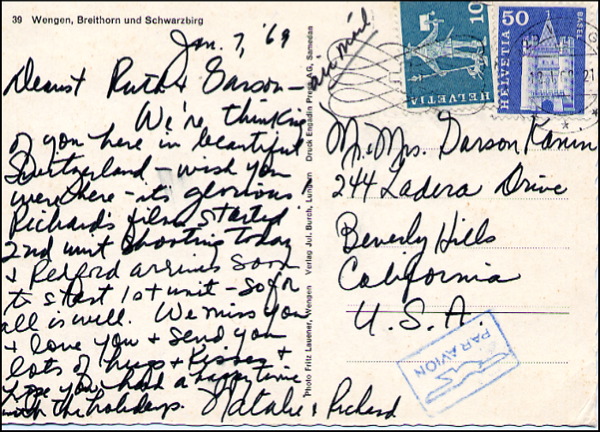 39 Wengen, Breithorn und Schwarzbirg
Jan. 7, '69
air mail
Dearest Ruth & Garson—
We're thinking
of you here in beautiful
Switzerland — wish you
were here – it's glorious!
Richard's film started
2nd unit shooting today
& Redford arrives soon
to start 1st unit – so far
all is well. We miss you
& love you & send you
lots of hugs & kisses &
hope you had a happy time
with the holidays. Natalie & Richard
Photo Fritz Lauener, Wengen Verlag Jul. Burch, Lungern Druck Engadin Press AG, Samedan
10
HELVETIA
50
HELVETIA
BASEL
Mr. Mrs. Garson Kanin
244 Ladera Drive
Beverly Hills
California
U.S.A.
PAR AVION